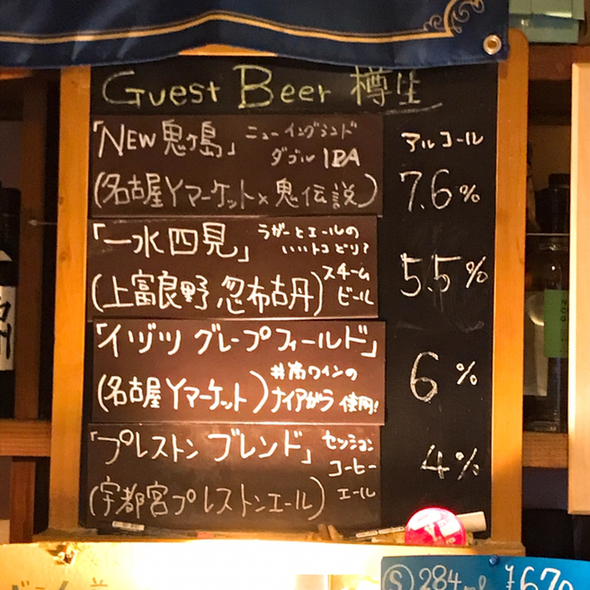 Guest Beer 樽生
アルコール
「NEW鬼ヶ島」
ニューイングランド
ダブルIPA
(名古屋Yマーケット×鬼伝説)
7.6%
「一水四見」
ラガーとエールの
いいトコどり?
(上富良野 忽布古丹)
スチーム
ビール
5.5%
「イヅツ グレープフィールド」
(名古屋Yマーケット)
井筒ワインの
ナイアガラ使用!
6%
「プレストン ブレンド」
セッション
コーヒー
エール
(宇都宮プレストンエール)
4%
Ⓢ284ml ¥670